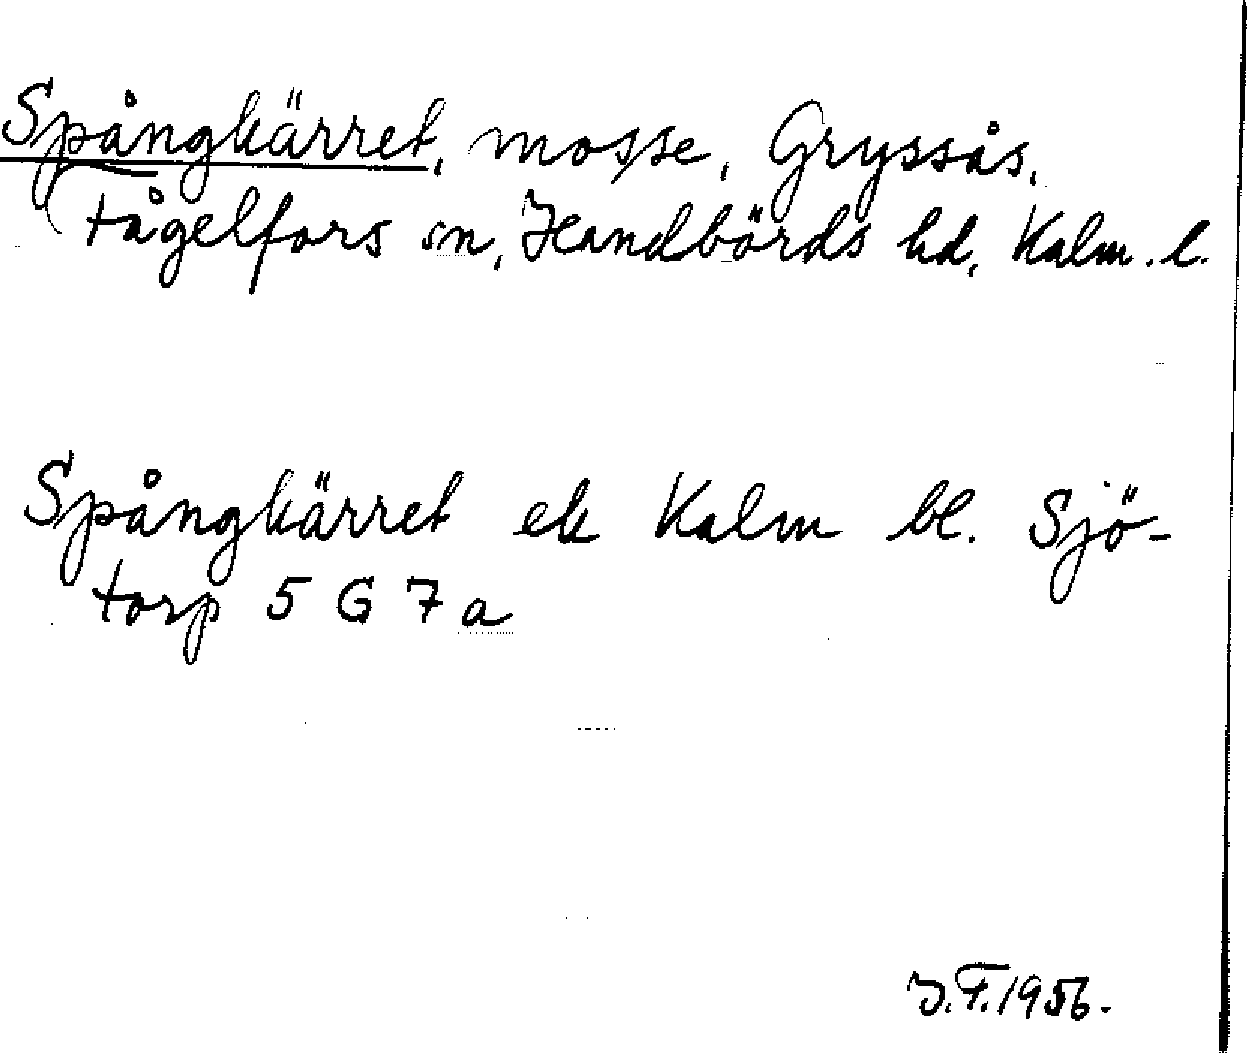 Spångkärret, mosse, Gryssås,
Fågelfors sn, Handbörds hd, Kalm. l.
Spångkärret ek Kalm bl. Sjö-
torp 5 G 7 a
J.F. 1956.